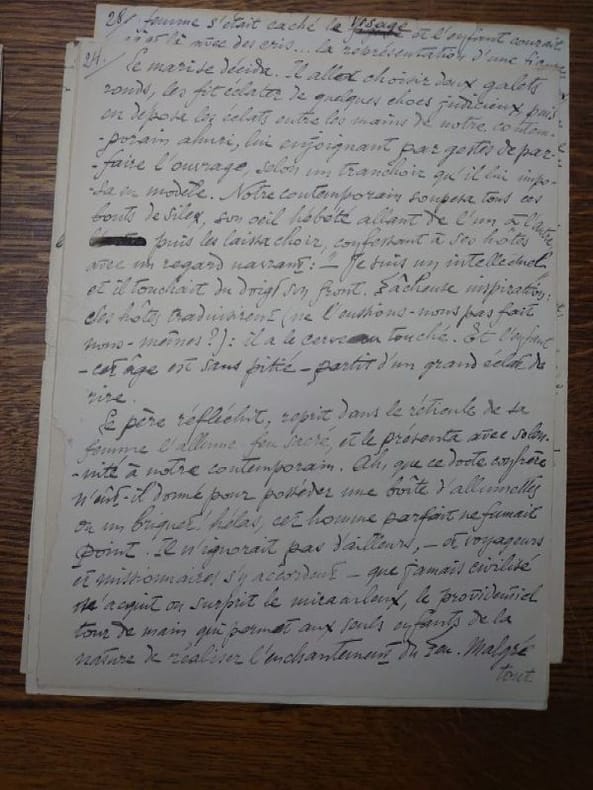 28/ femme s'était caché le visage et l'enfant courait
çà et là avec des cris... la représentation d'une figure
24.
Le mari se décida. Il alla choisir deux galets
ronds, les fit éclater de quelques chocs judicieux puis
en déposa les éclats entre les mains de notre contem-
-porain ahuri, lui enjoignant par gestes de par-
-faire l'ouvrage, selon un tranchoir qu'il lui impo-
-sa en modèle. Notre contemporain soupesa tous ces
bouts de silex, son oeil hébété allant de l'un à l'autre
puis les laissa choir, confessant à ses hôtes
avec un regard navrant : - Je suis un intellectuel
et il touchait du doigt son front. Fâcheuse inspiration :
les hôtes traduisirent (ne l'eussions-nous pas fait
nous-mêmes ?) : il a le cerveau touché. Et l'enfant
- cet âge est sans pitié - partit d'un grand éclat de
rire.
Le père réfléchit, reprit dans le réticule de sa
femme l'allume-feu sacré, et le présenta avec solen-
-nité à notre contemporain. Ah, que ce docte confrère
n'eût-il donné pour posséder une boîte d'allumettes
ou un briquet ! hélas, cet homme parfait ne fumait
point. Il n'ignorait pas d'ailleurs, - et voyageurs
et missionnaires s'y accordent - que jamais civilisé
n'acquit ou surprit le miraculeux, le providentiel
tour de main qui permet aux seuls enfants de la
nature de réaliser l'enchantement du feu. Malgré
tout